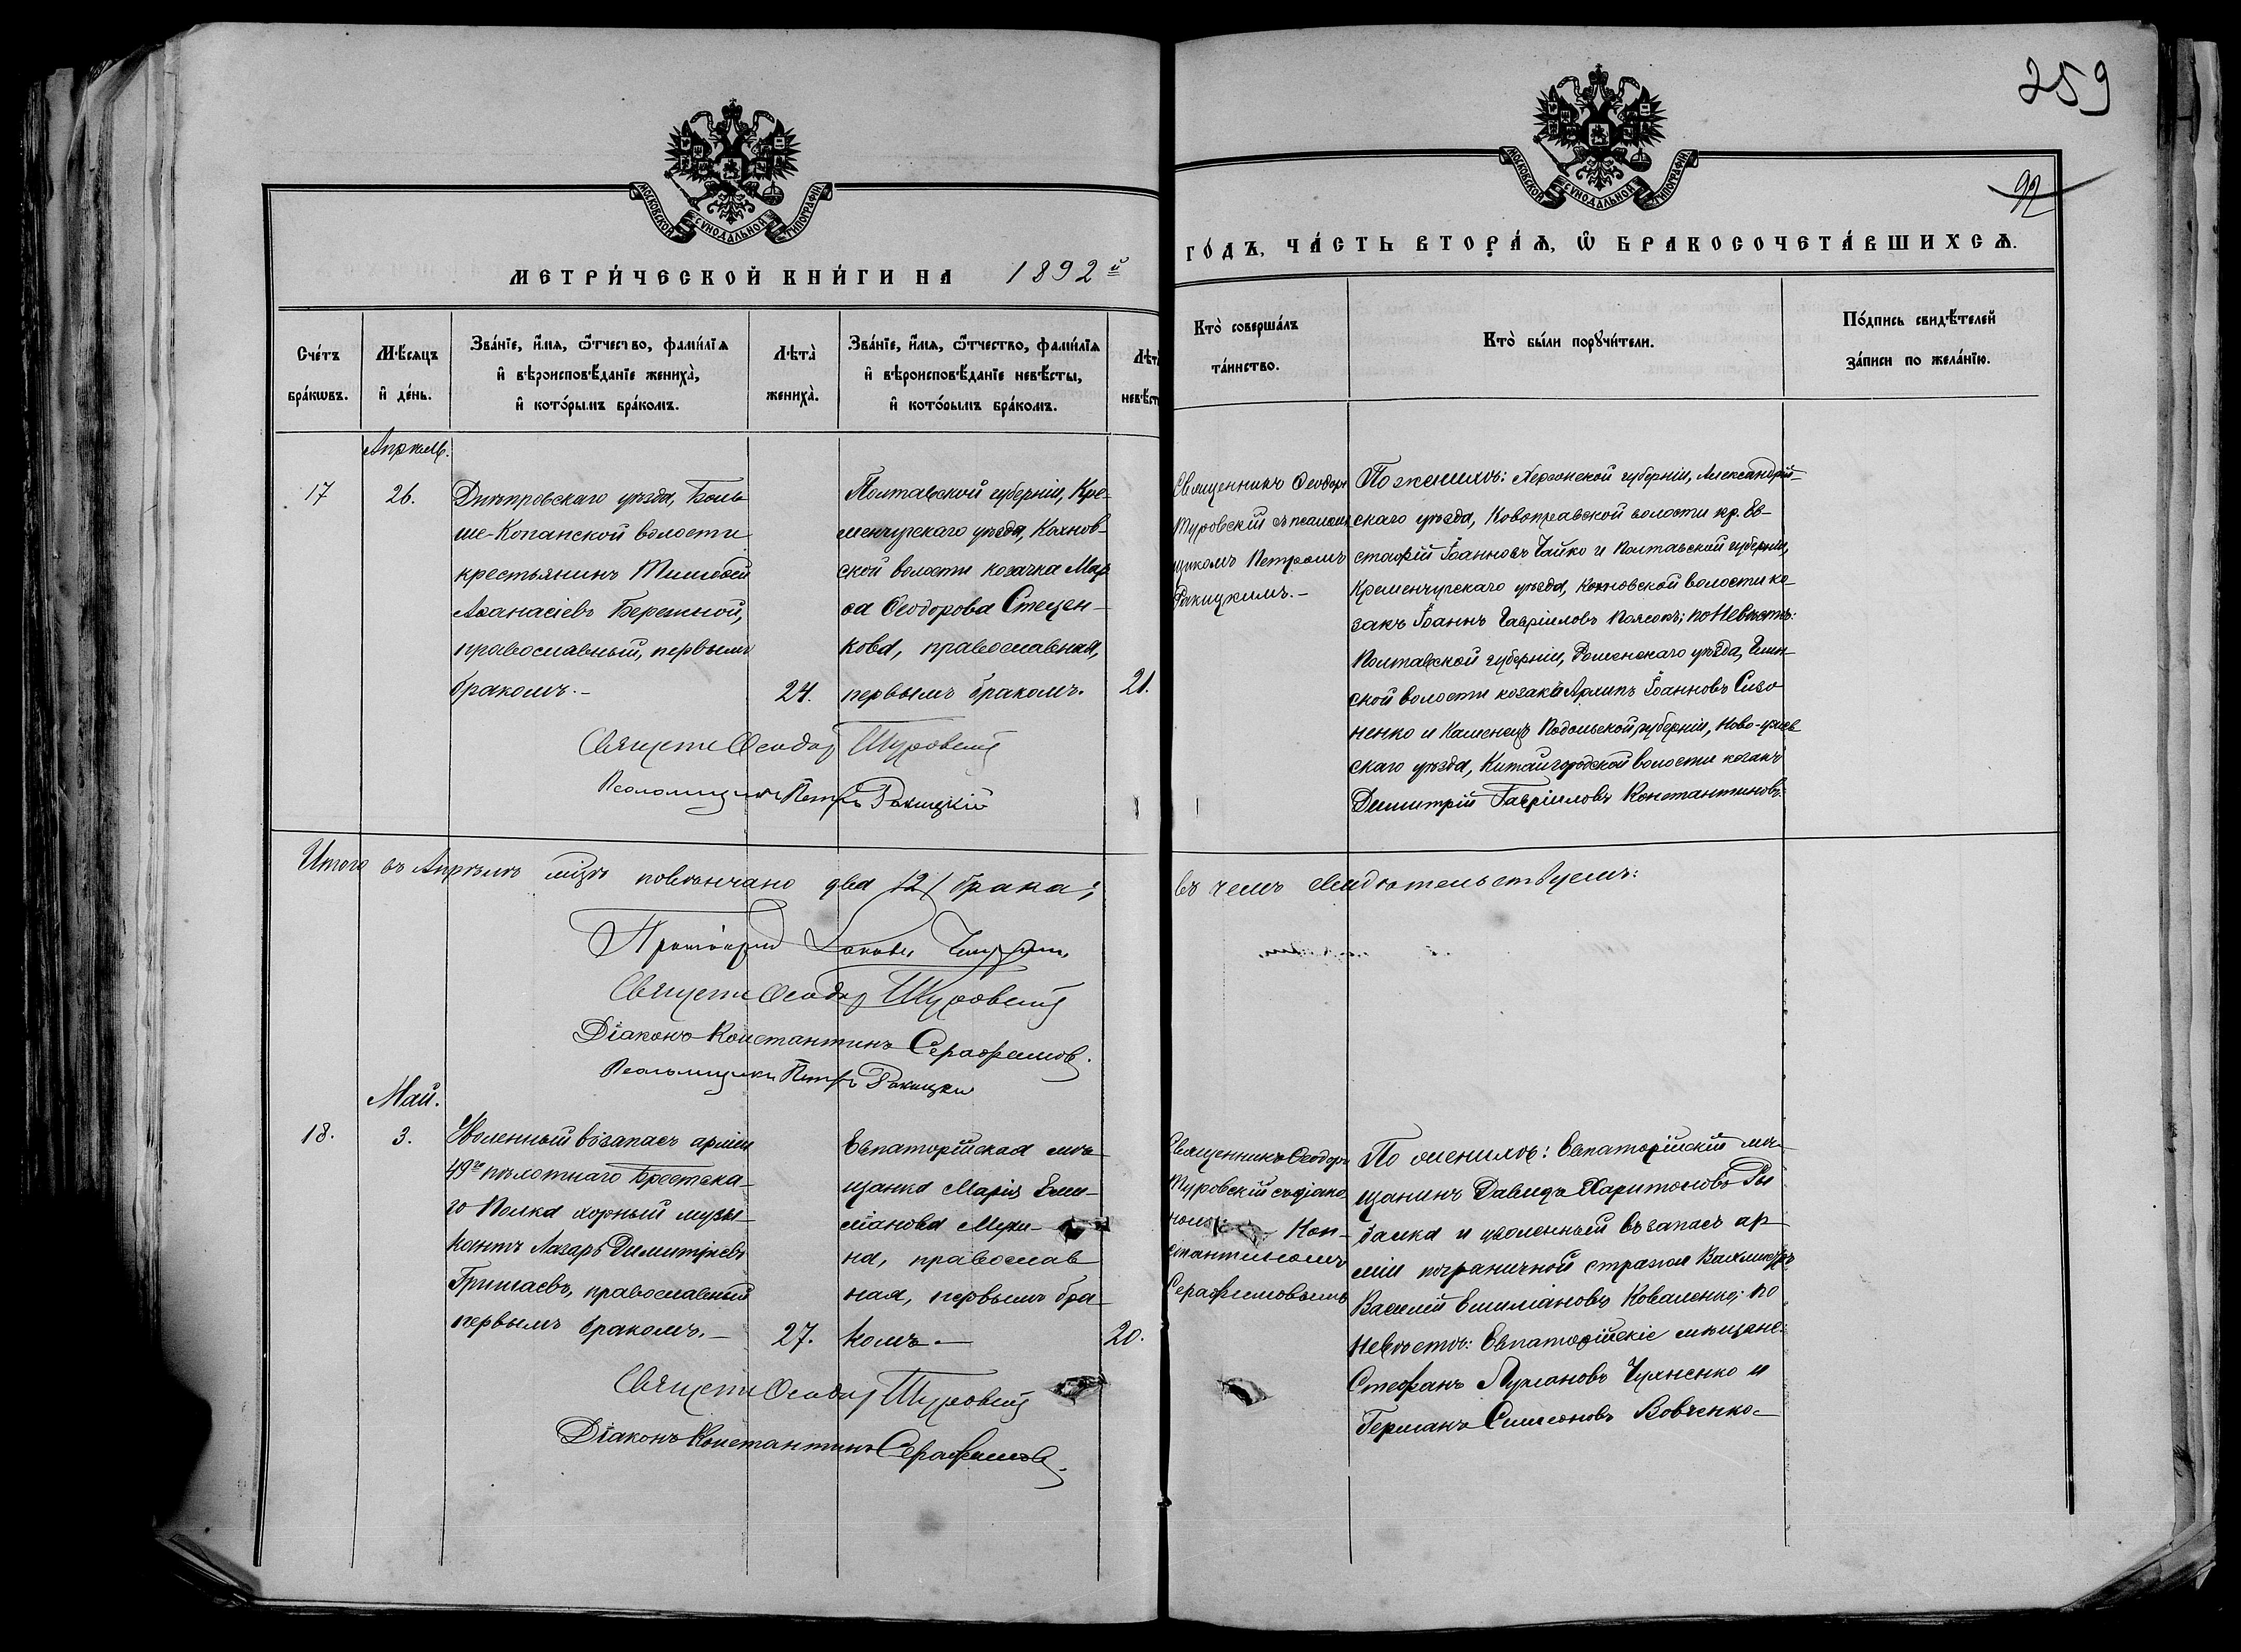 259
92
МОСКОВСКОЙ СѴНОДАЛЬНОЙ ТИПОГРАФІИ
МОСКОВСКОЙ СѴНОДАЛЬНОЙ ТИПОГРАФІИ
МЕТРИ́ЧЕСКОЙ КНИ́ГИ НА 1892й
ГО́ДЪ, ЧА́СТЬ ВТОРА́Ѧ, Ѽ БРАКОСОЧЕТА́ВШИХСѦ.
Сче́тъ
бра́кѡвъ.
Мѣ́сяцъ
и҆ де́нь.
Зва́нїе, и҆́мѧ, ѻ҆́тчество, фами́лїѧ
и҆ вѣроисповѣ́данїе жениха̀,
и҆ кото́рымъ бра́комъ.
Лѣта̀
жениха̀.
Зва́нїе, и҆́мѧ, ѻ҆́тчество, фами́лїѧ
и҆ вѣроисповѣ́данїе невѣ́сты,
и҆ кото́рымъ бра́комъ.
Лѣт
невѣст
Кто̀ соверша́лъ
та́инство.
Кто̀ бы́ли порꙋчи́тели.
По́дпись свидѣ́телей
за́писи по жела́нїю.
Апрѣль.
17
26.
Днѣпровскаго уѣзда, Боль
ше-Копанской волости
крестьянинъ Тимоѳей
Аѳанасіевъ Бережной,
православный, первымъ
бракомъ.-
24.
Полтавской губерніи, Кре-
менчугскаго уѣзда, Кохнов-
ской волости козачка Мар
ѳа Ѳеодорова Стецен-
кова, православная,
первымъ бракомъ.
21.
Священникъ Ѳеодоръ
Туровскій съ псалом
щикомъ Петромъ
Ракицкимъ.-
По женихѣ: Херсонской губерніи, Александрій-
скаго уѣзда, Новопражской волости кр. Ев-
стафій Іоанновъ Чайко и Полтавской губерніи,
Кременчугскаго уѣзда, Кохновской волости ко-
закъ Іоаннъ Гавріиловъ; по невѣстѣ:
Полтавской губерніи, Роменскаго уѣзда,
ской волости козакъ Архипъ Іоанновъ Сизо
ненко и Каменецъ Подольской губерніи, Ново-
скаго уѣзда, Китайгородской волости козакъ
Димитрій Гавріиловъ Константиновъ.
Священ Ѳеодор Туровскій
Псаломщикъ Петръ Ракицкій
Итого въ Апрѣлѣ мѣсѣ повѣнчано два /2/ брака;
въ чемъ свидѣтельствуемъ:
Протоіерей Іаковъ
Священ Ѳеодор Туровскій
Діаконъ Константинъ Серафимовъ.
Псаломщикъ Петръ Ракицкій
Май.
18.
3.
Уволенный въ запасъ арміи
49го пѣхотнаго Брестска-
го Полка хорный музы-
кантъ Лазарь Димитріевъ
Гришаевъ, православный
первымъ бракомъ.-
27.
Евпаторійская мѣ
щанка Марія Еми-
ліанова Мухи-
на, православ
ная, первымъ бра-
комъ.-
20.
Священникъ Ѳеодоръ
Туровскій съ діако
номъ Кон-
стантиномъ
Серафимовымъ
По женихѣ: Евпаторійскій мѣ-
щанинъ Давидъ Харитоновъ Ры
балка и уволенный въ запасъ ар-
міи пограничной стражи Вахмистръ
Василій Емиліановъ Коваленко; по
невѣстѣ: Евпаторійскіе мѣщане:
Стефанъ Чухненко и
Германъ Симеоновъ Вовченко-
Священ Ѳеодор Туровскій
Діаконъ Константинъ Серафимовъ.